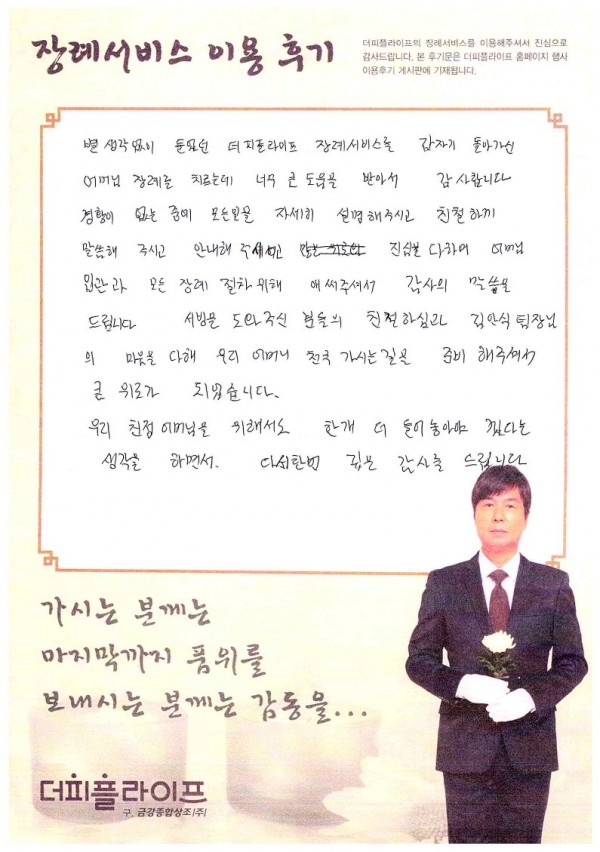 장례서비스 이용 후기
더피플라이프의 장례서비스를 이용해주셔서 진심으로
감사드립니다. 본 후기문은 더피플라이프 홈페이지 행사
이용후기 게시판에 기재됩니다.
별 생각없이 들었던 더피플라이프 장례서비스를 갑자기 돌아가신
어머님 장례를 치르는데 너무 큰 도움을 받아서 감사합니다
경황이 없는 중에 모든일을 자세히 설명해주시고 친절하게
말씀해 주시고 안내해 주셔서 진심을 다하여 어머님
입관과 모든 장례 절차 위해 애써주셔서 감사의 말씀을
드립니다 서빙을 도와주신 분들의 친절하심과 김인식 팀장님
의 마음을 다해 우리 어머니 천국 가시는 길을 준비 해주셔서
큰 위로가 되었습니다.
우리 친정어머님을 위해서도 한개 더 들어놓아야 겠다는
생각을 하면서. 다시한번 깊은 감사를 드립니다
가시는 분께는
마지막까지 품위를
보내시는 분께는 감동을...
더피플라이프
구. 금강종합상조(주)